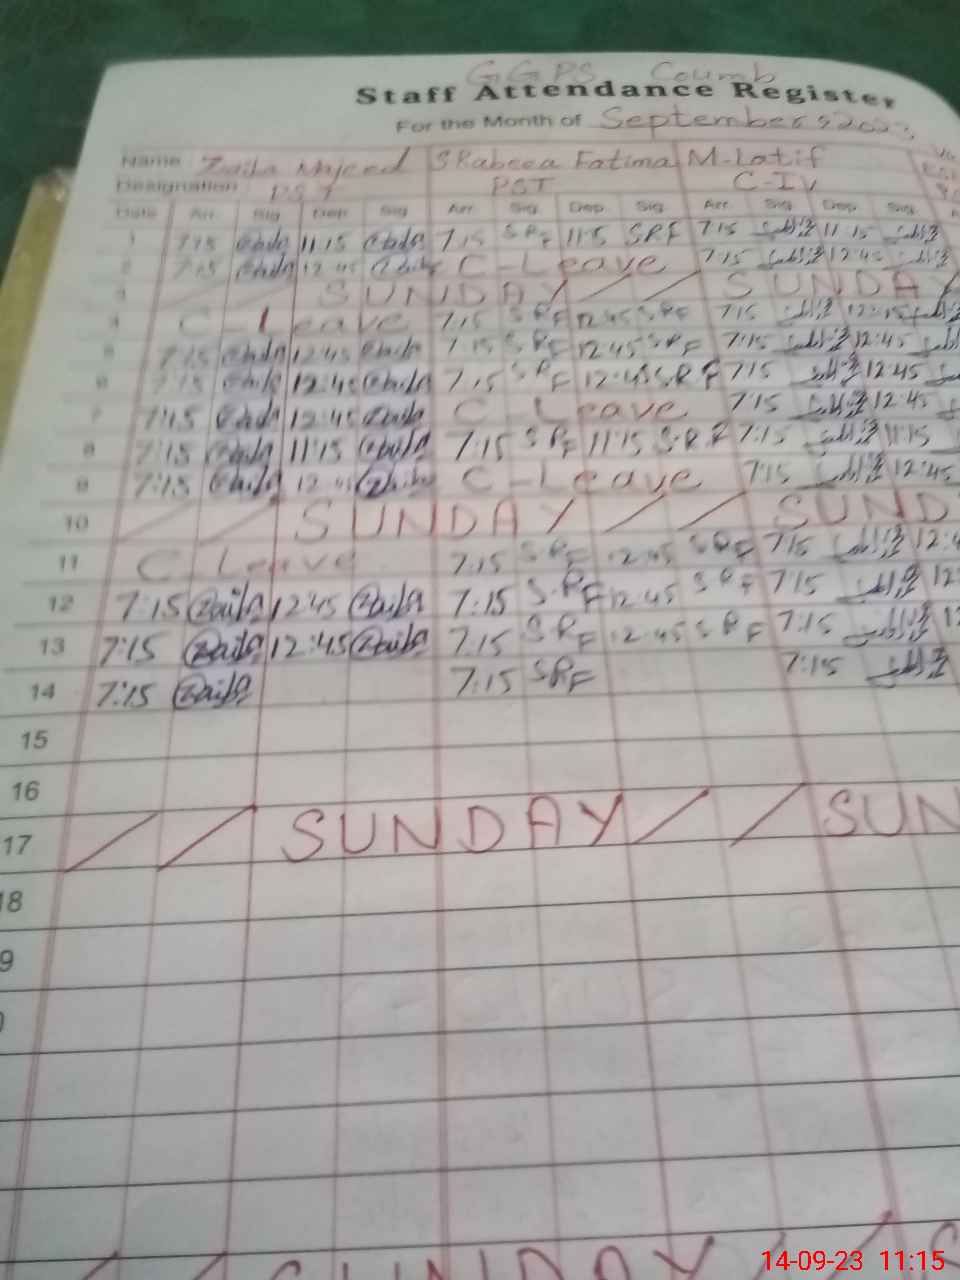 GGPS Coumb
Staff Attendance Register
For the Month of September 2023
Name Zaila Majeed SRabeea Fatima M-Latif
Designation PST PST C-IV
Date Arr. Sig. Dep. Sig. Arr. Sig. Dep. Sig. Arr. Sig. Dep. Sig.
1 7:15 Zaila 11:15 Zaila 7:15 SRF 11:15 SRF 7:15 11:15
2 7:15 Zaila 12:45 Zaila C-Leave 7:15 12:45
3 SUNDAY SUNDAY
4 C Leave 7:15 SRF 12:45 SRF 7:15 12:45
5 7:15 Zaila 12:45 Zaila 7:15 SRF 12:45 SRF 7:15 12:45
6 7:15 Zaila 12:45 Zaila 7:15 SRF 12:45 SRF 7:15 12:45
7 7:15 Zaila 12:45 Zaila C-Leave 7:15 12:45
8 7:15 Zaila 11:15 Zaila 7:15 SRF 11:15 S.RF 7:15 11:15
9 7:15 Zaila 12:45 Zaila C-Leave 7:15 12:45
10 SUNDAY SUND
11 C Leave 7:15 SRF 12:45 SRF 7:15 12:4
12 7:15 Zaila 12:45 Zaila 7:15 S.RF 12:45 SRF 7:15 12:
13 7:15 Zaila 12:45 Zaila 7:15 SRF 12:45 SRF 7:15 12
14 7:15 Zaila 7:15 SRF 7:15
15
16
17 SUNDAY SUN
18
9
SUNDAY S
14-09-23 11:15